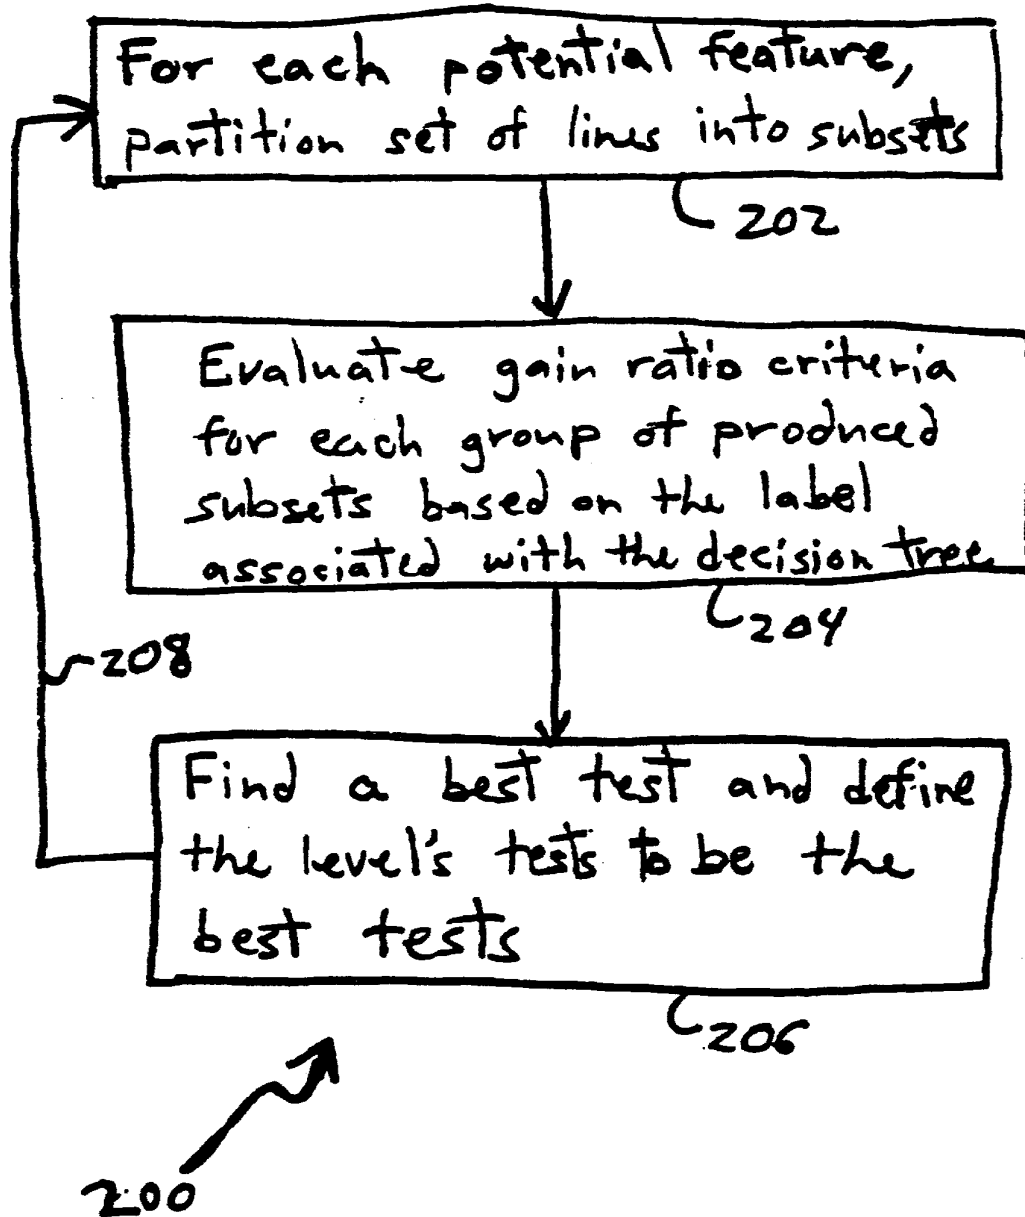 For each potential feature,
partition set of lines into subsets
202
Evaluate gain ratio criteria
for each group of produced
subsets based on the label
associated with the decision tree.
204
208
Find a best test and define
the level's tests to be the
best tests
206
200